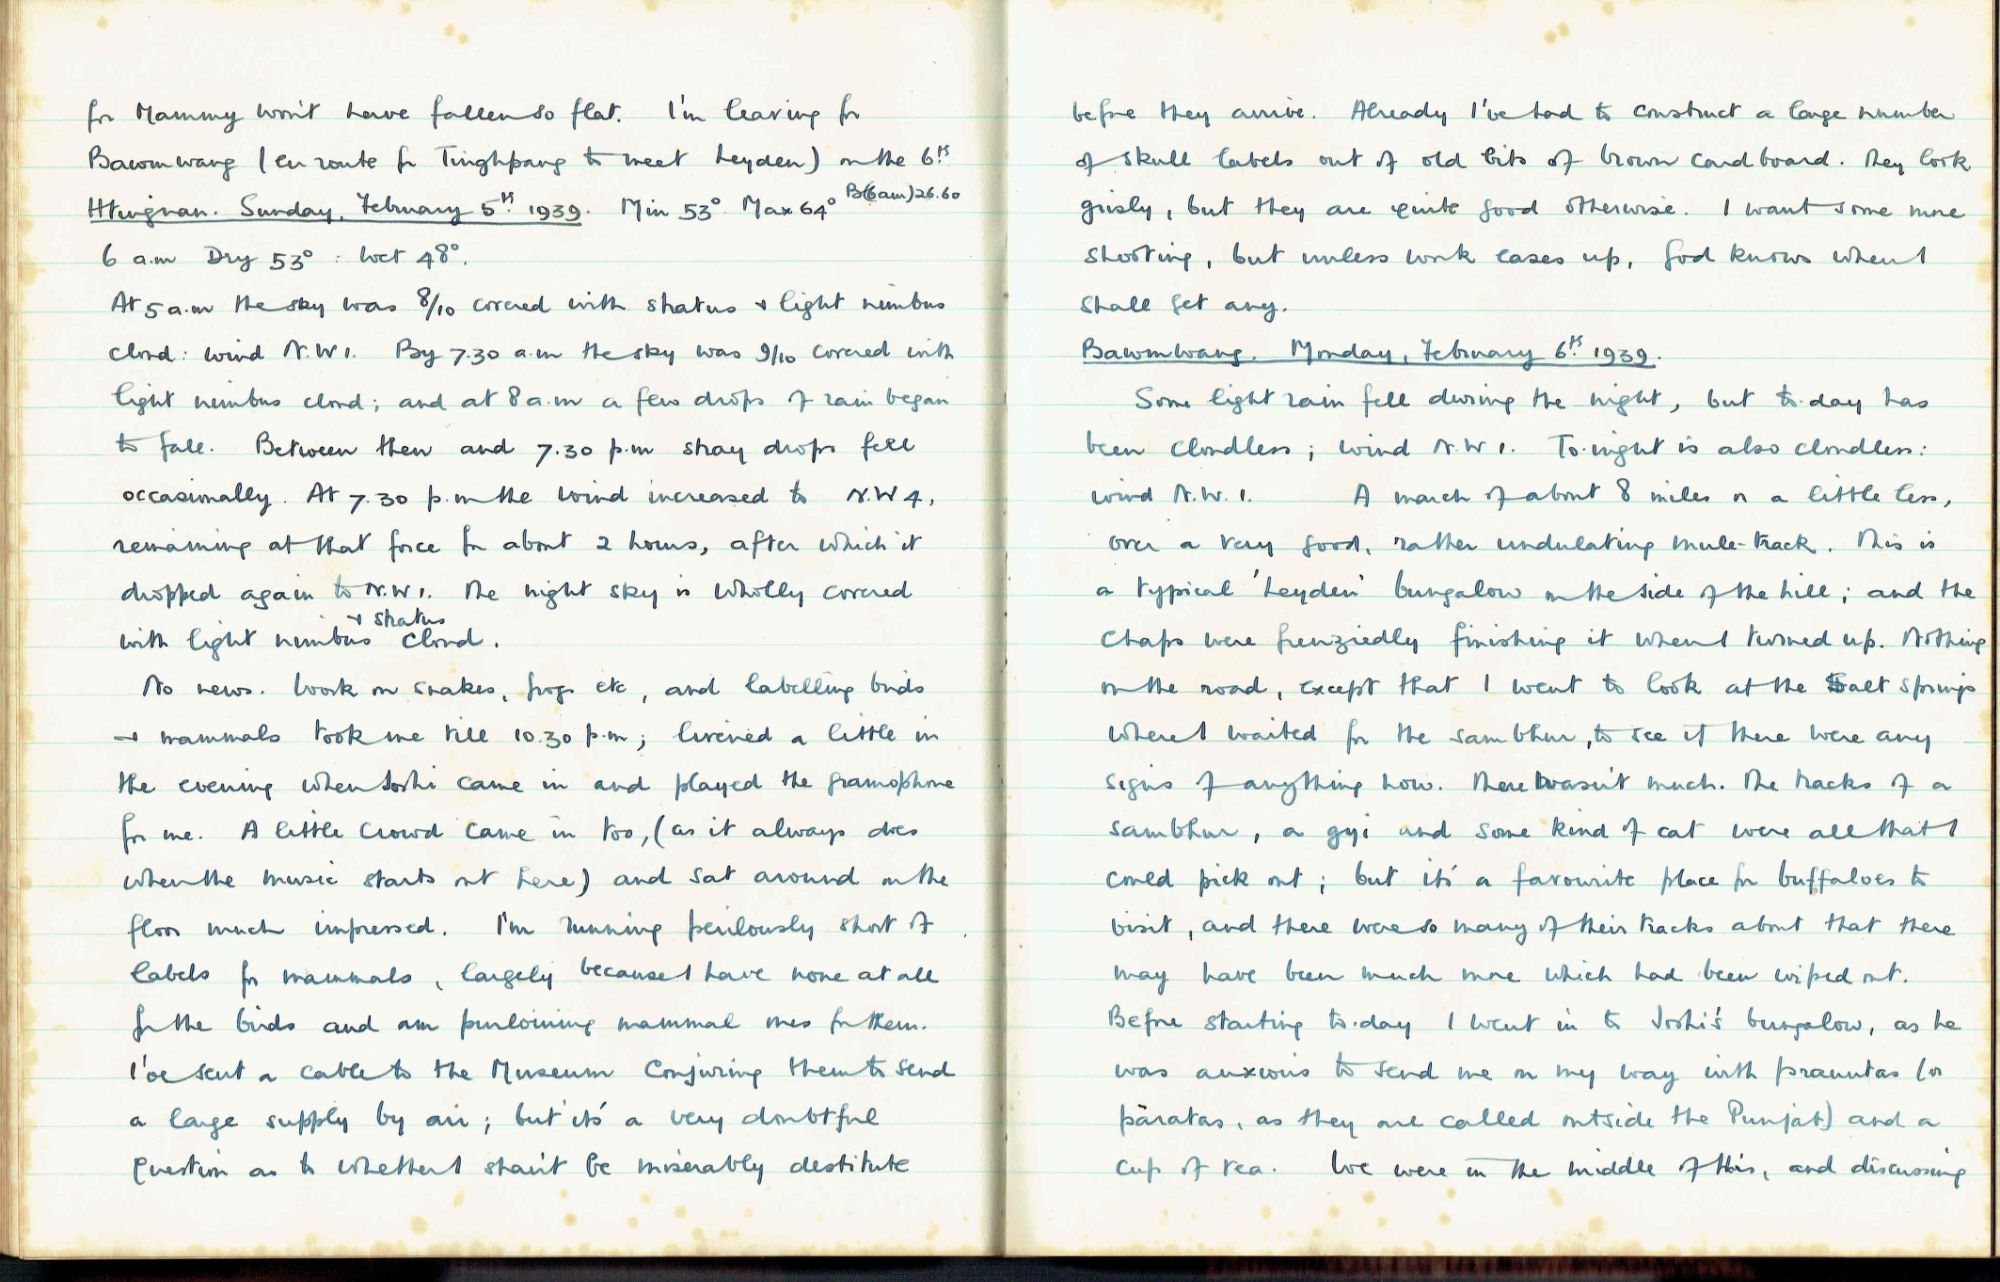 for Mammy won't have fallen so flat. I'm leaving for
Bawmwang (en route for Tinghpang to meet Leyden) on the 6th
Htingnan. Sunday, February 5th. 1939. Min 53° Max 64° B(6am) 26.60
6 a.m Dry 53° : Wet 48°.
At 5 a.m the sky was 8/10 covered with stratus + light nimbus
cloud: wind N.W 1. By 7.30 a.m the sky was 9/10 covered with
light nimbus cloud; and at 8 a.m a few drops of rain began
to fall. Between then and 7.30 p.m stray drops fell
occasionally. At 7.30 p.m the wind increased to N.W 4,
remaining at that force for about 2 hours, after which it
dropped again to N.W 1. The night sky is wholly covered
with light nimbus + stratus cloud.
No news. Work on snakes, frogs etc, and labelling birds
+ mammals took me till 10.30 p.m; livened a little in
the evening when Joshi came in and played the gramophone
for me. A little crowd came in too, (as it always does
when the music starts out here) and sat around on the
floor much impressed. I'm running perilously short of
labels for mammals, largely because I have none at all
for the birds and am purloining mammal ones for them.
I've sent a cable to the Museum conjuring them to send
a large supply by air; but it's a very doubtful
question as to whether I shan't be miserably destitute
before they arrive. Already I've had to construct a large number
of skull labels out of old bits of brown cardboard. They look
grisly, but they are quite good otherwise. I want some more
shooting, but unless work eases up, God knows when I
shall get any.
Bawmwang. Monday, February 6th. 1939.
Some light rain fell during the night, but to-day has
been cloudless; wind N.W 1. To-night is also cloudless:
wind N.W. 1. A march of about 8 miles or a little less,
over a very good, rather undulating mule-track. This is
a typical 'Leyden' bungalow on the side of the hill; and the
chaps were frenziedly finishing it when I turned up. Nothing
on the road, except that I went to look at the Salt Springs
where I waited for the sambhur, to see if there were any
signs of anything now. There wasn't much. The tracks of a
sambhur, a gyi and some kind of cat were all that I
could pick out; but it's a favourite place for buffaloes to
visit, and there were so many of their tracks about that there
may have been much more which had been wiped out.
Before starting to-day I went in to Joshi's bungalow, as he
was anxious to send me on my way with prauntas (or
pāratas, as they are called outside the Punjab) and a
cup of tea. We were in the middle of this, and discussing